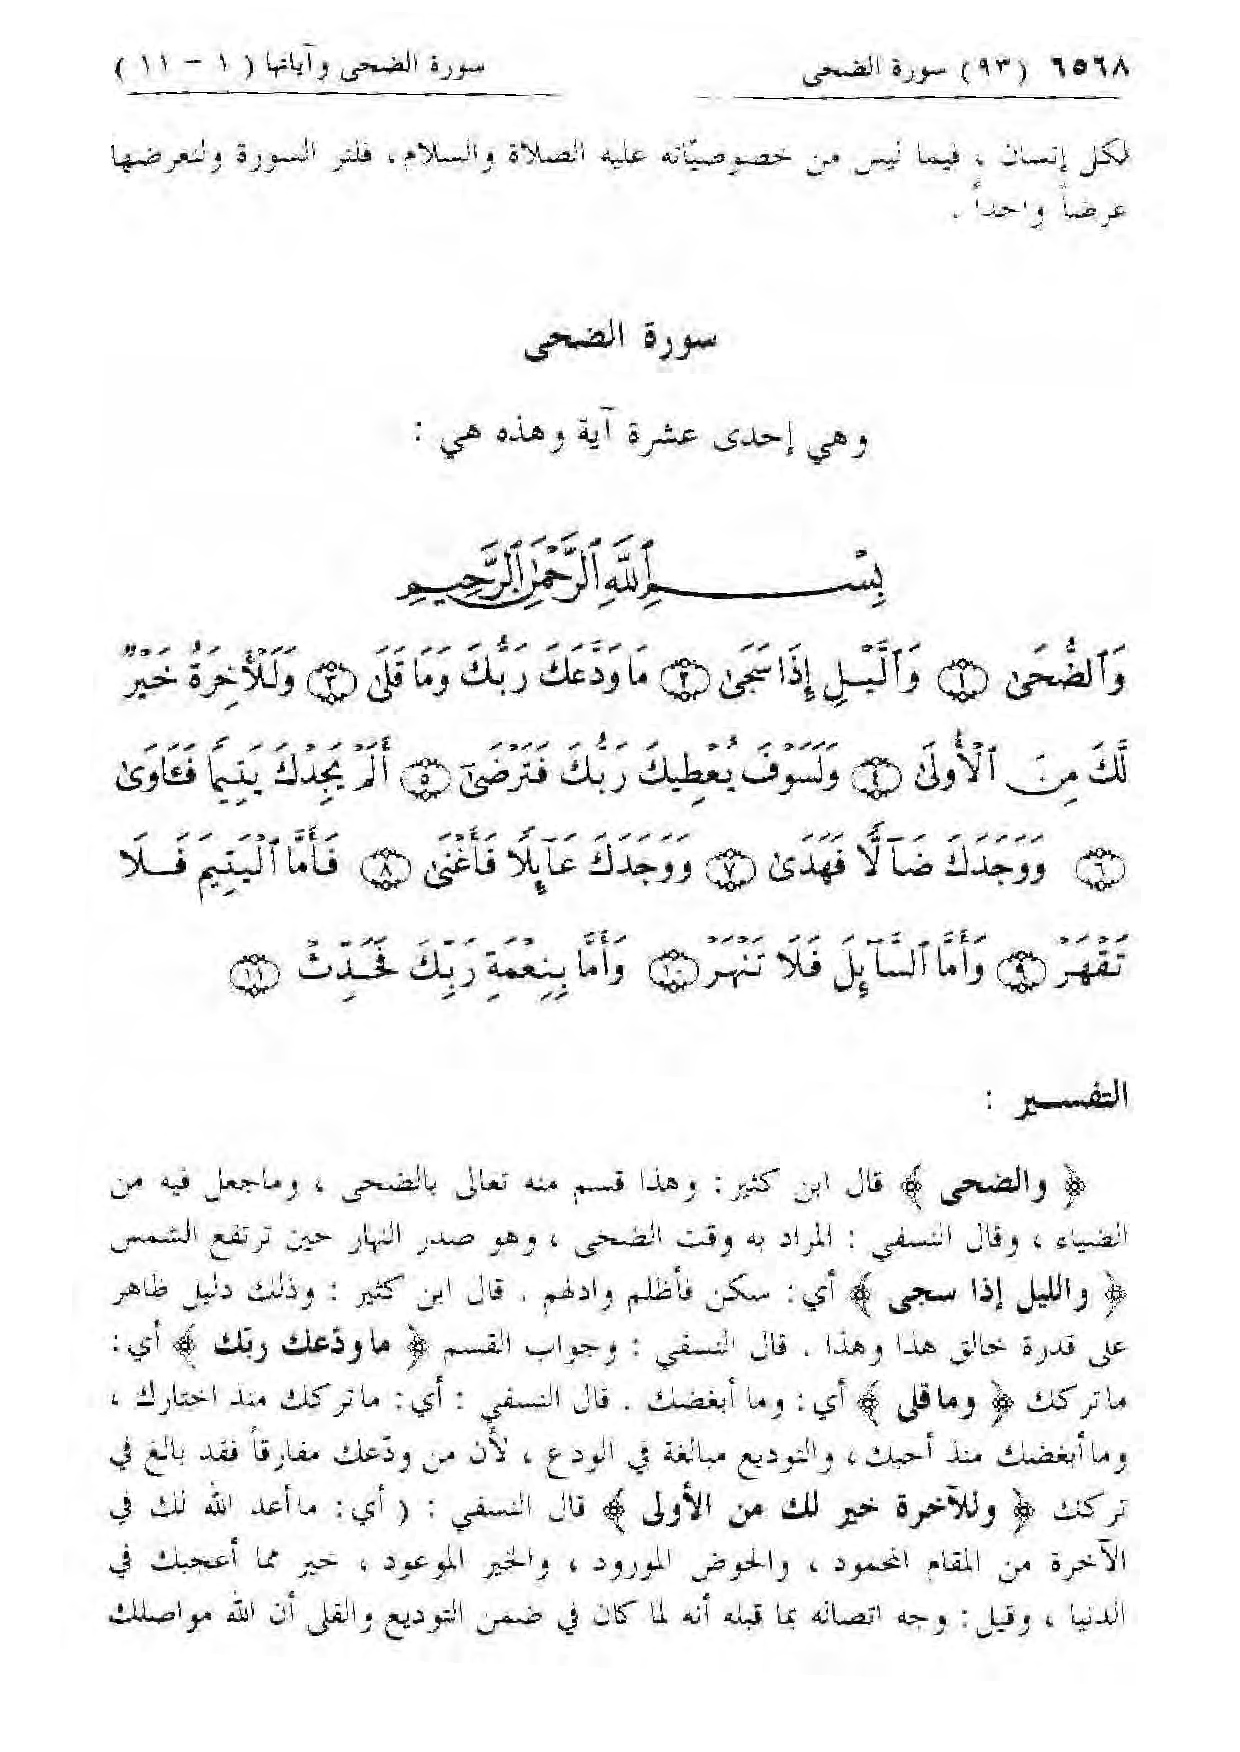 ٦٥٦٨ (٩٣) سورة الضحى سورة الضحى وآياتها ( ١ – ١١ )
لكل إنسان ، فيما ليس من خصوصيّاته عليه الصلاة والسلام ، فلنر السورة ولنعرضها
عرضاً واحداً .
سورة الضحى
وهي إحدى عشرة آية وهذه هي :
بِسْمِ ٱللَّهِ ٱلرَّحْمَٰنِ ٱلرَّحِيمِ
وَٱلضُّحَىٰ ﴿١﴾ وَٱلَّيْلِ إِذَا سَجَىٰ ﴿٢﴾ مَا وَدَّعَكَ رَبُّكَ وَمَا قَلَىٰ ﴿٣﴾ وَلَلْأَخِرَةُ خَيْرٌ
لَّكَ مِنَ ٱلْأُولَىٰ ﴿٤﴾ وَلَسَوْفَ يُعْطِيكَ رَبُّكَ فَتَرْضَىٰٓ ﴿٥﴾ أَلَمْ يَجِدْكَ يَتِيمًا فَـَٔاوَىٰ
﴿٦﴾ وَوَجَدَكَ ضَآلًّا فَهَدَىٰ ﴿٧﴾ وَوَجَدَكَ عَآئِلًا فَأَغْنَىٰ ﴿٨﴾ فَأَمَّا ٱلْيَتِيمَ فَلَا
تَقْهَرْ ﴿٩﴾ وَأَمَّا ٱلسَّآئِلَ فَلَا تَنْهَرْ ﴿١٠﴾ وَأَمَّا بِنِعْمَةِ رَبِّكَ فَحَدِّثْ ﴿١١﴾
التفسير :
﴿ والضحى ﴾ قال ابن كثير : وهذا قسم منه تعالى بالضحى ، وماجعل فيه من
الضياء ، وقال النسفي : المراد به وقت الضحى ، وهو صدر النهار حين ترتفع الشمس
﴿ والليل إذا سجى ﴾ أي : سكن فأظلم وادلهم . قال ابن كثير : وذلك دليل ظاهر
على قدرة خالق هذا وهذا . قال النسفي : وجواب القسم ﴿ ماودّعك ربّك ﴾ أي :
ماتركك ﴿ وماقلى ﴾ أي : وما أبغضك . قال النسفي : أي : ماتركك منذ اختارك ،
وماأبغضك منذ أحبك ، والتوديع مبالغة في الودع ، لأن من ودّعك مفارقاً فقد بالغ في
تركك ﴿ وللآخرة خير لك من الأولى ﴾ قال النسفي : ( أي : ماأعد الله لك في
الآخرة من المقام المحمود ، والحوض المورود ، والخير الموعود ، خير مما أعجبك في
الدنيا ، وقيل : وجه اتصاله بما قبله أنه لما كان في ضمن التوديع والقلى أن الله مواصلك